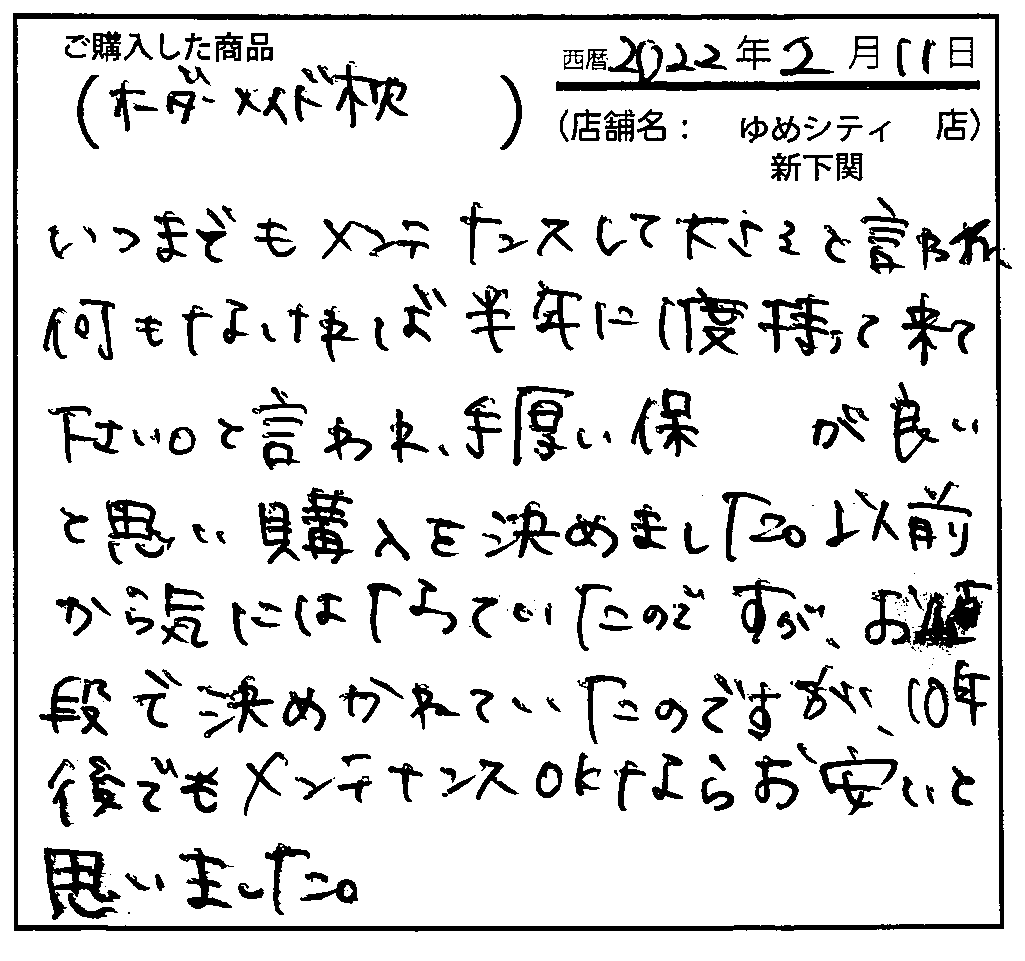 ご購入した商品
(オーダーメイド枕)
西暦2022年2月11日
(店舗名： ゆめシティ 店)
新下関
いつまでもメンテナンスして と言われ、
何もなければ半年に1度持って来て
下さい。と言われ、手厚い保 が良い
と思い購入を決めました。以前
から気にはなっていたのですが、お値
段で決めかねていたのですが、10年
後でもメンテナンスOKならお安いと
思いました。